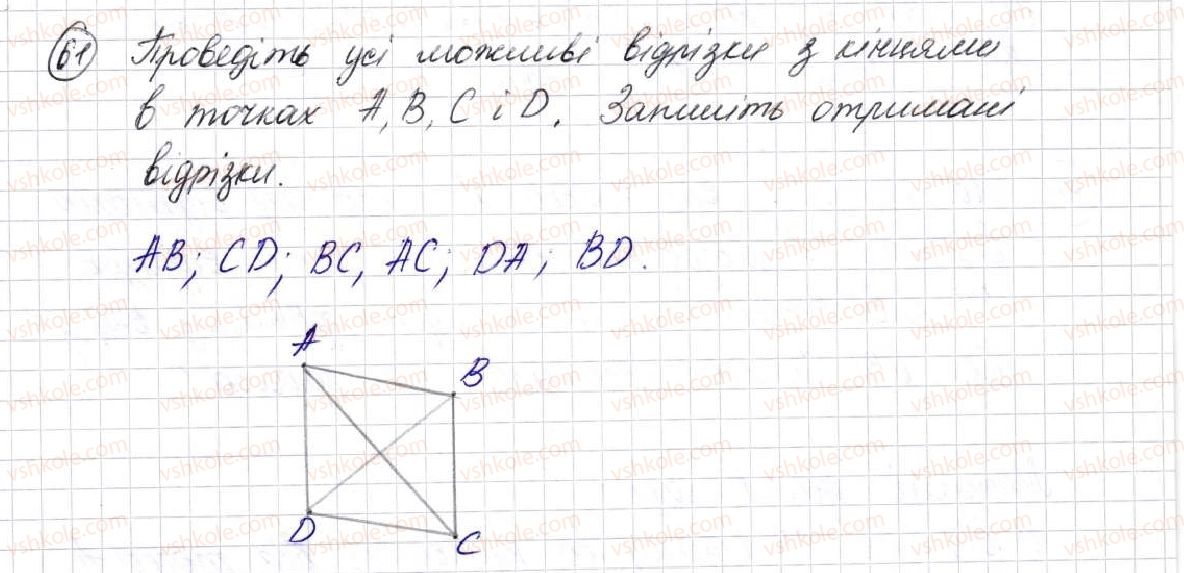 61 Проведіть усі можливі відрізки з кінцями
в точках A, B, C і D. Запишіть отримані
відрізки.
AB; CD; BC, AC; DA; BD.
A
B
D
C
vshkole.com